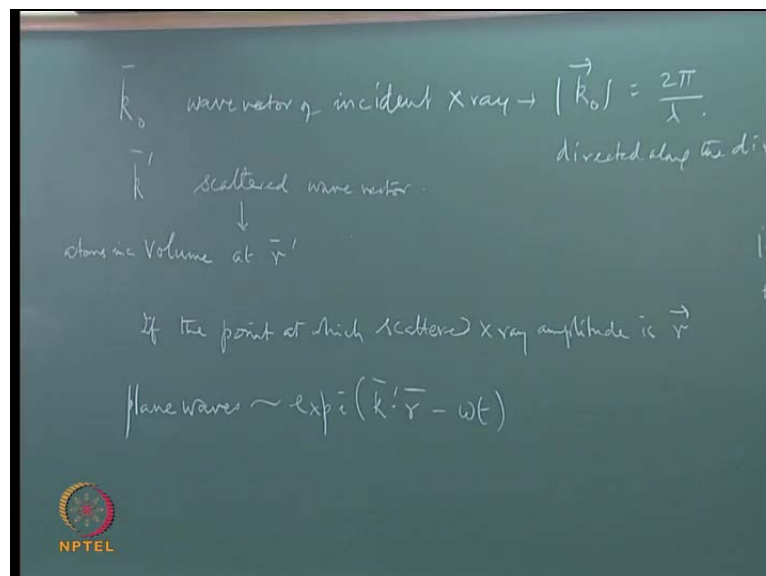 k̄₀ wave vector of incident x ray → |k⃗₀| = 2π/λ.
directed along the di
k̄′ scattered wave vector.
↓
atoms in a Volume at r̄′
If the point at which scattered x ray amplitude is r⃗
plane waves ~ exp i (k̄′·r̄ − ωt)
NPTEL